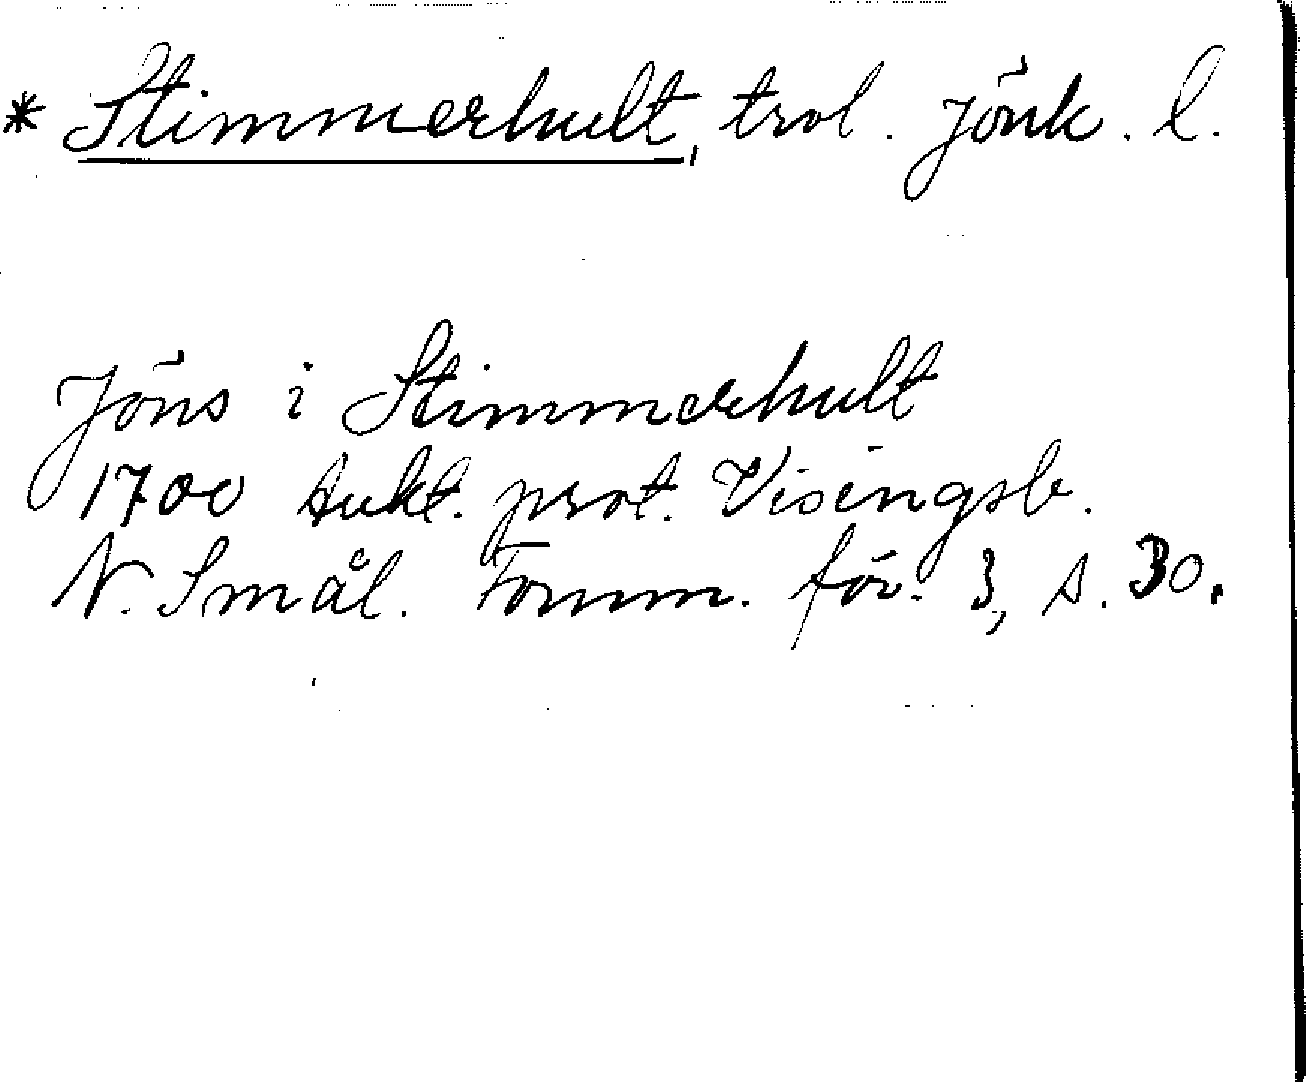 * Stimmerhult, trol. Jönk. l.
Jöns i Stimmerhult
1700 Aukt. prot. Visingsb.
N. Smål. Fornm. för. 3, s. 30.